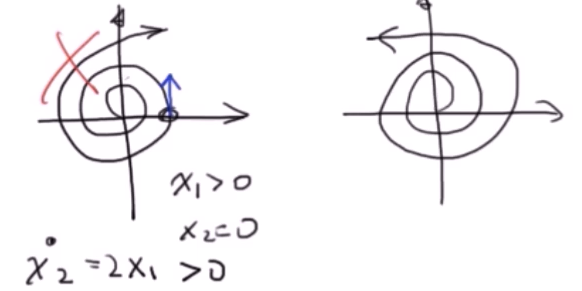 x₁ > 0
x₂ = 0
ẋ₂ = 2x₁ > 0